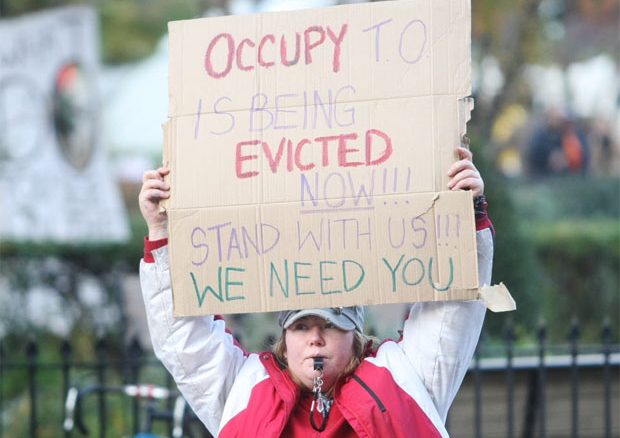 OCCUPY T.O.
IS BEING
EVICTED
NOW!!!
STAND WITH US!!!
WE NEED YOU